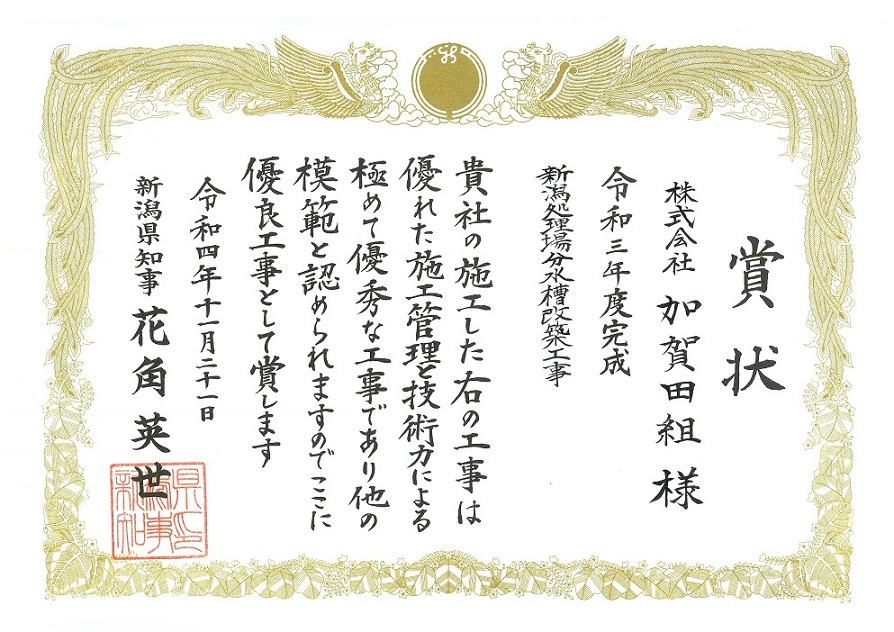 賞状
株式会社 加賀田組 様
令和三年度完成
新潟処理場分水槽改築工事
貴社の施工した右の工事は
優れた施工管理と技術力による
極めて優秀な工事であり他の
模範と認められますのでここに
優良工事として賞します
令和四年十一月二十一日
新潟県知事 花角英世
新潟県知事印